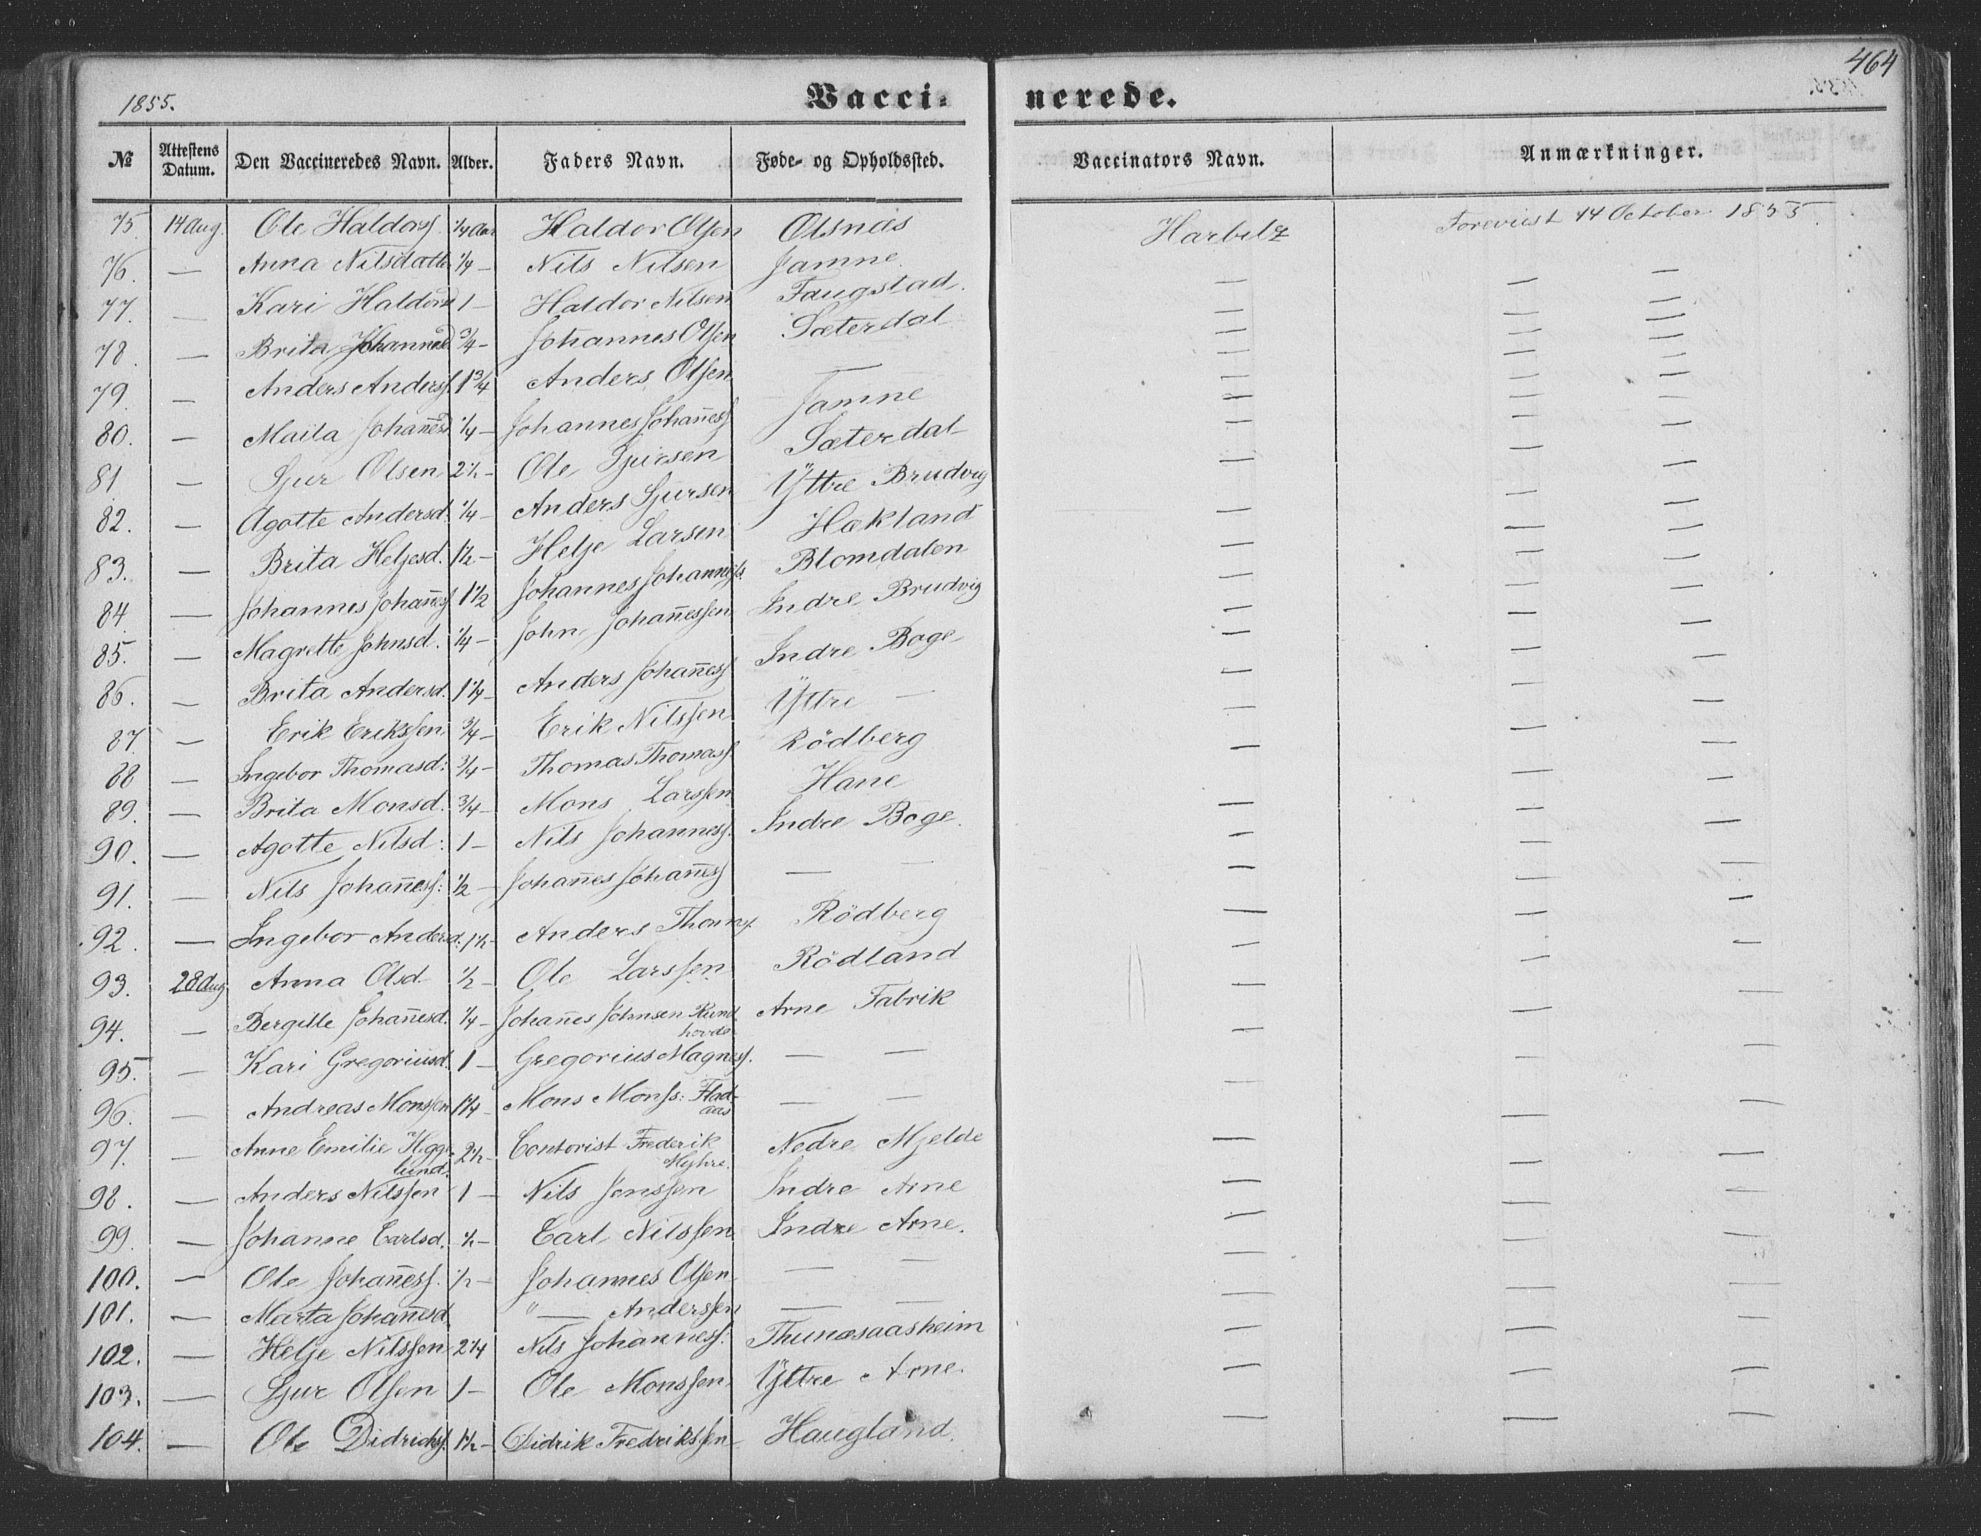 464
1855.
Vacci- nerede.
№ Attestens Datum. Den Vaccineredes Navn. Alder. Faders Navn. Føde- og Opholdssted. Vaccinators Navn. Anmærkninger.
75. 14 Aug. Ole Haldors. 1/4 Aar Haldor Olsen Olsnæs Harbitz Foreviist 14 October 1855.
76. — Anna Nilsdatter 1/4 — Nils Nilsen Jamne — —
77. — Kari Haldorsd 1 — Haldor Nilsen Faugstad. — —
78. — Brita Johannesd 3/4 — Johannes Olsen Sæterdal — —
79. — Anders Anderss. 1 3/4 Anders Olsen — — —
80. — Maita Johanesd 1/4 — Johannes Johaness Jamne — —
81 — Sjur Olsen 2 1/2 — Ole Sjursen Sæterdal — —
82. — Agotte Andersd. 1/4 — Anders Sjursen Yttre Brudvig — —
83. — Brita Heljesd. 1 1/2 — Helje Larsen Hækland — —
84 — Johannes Johaness 1 1/2 Johannes Johanness. Blomdalen — —
85. — Magrette Johnsd. 1/4 — John Johanessen Indre Brudvig — —
86. — Brita Andersd. 1 1/4 — Anders Johaness Indre Boge — —
87 — Erik Erikssen 3/4 — Erik Nilssen Yttre — — —
88 — Ingebor Thomasd: 3/4 — Thomas Thomass. Rödberg — —
89. — Brita Monsd. 3/4 — Mons Larssen Hane — —
90. — Agotte Nilsd: 1 — Nils Johanness. Indre Boge. — —
91. — Nils Johaness: 1/2 — Johanes Johaness — — — —
92. — Ingebor Andersd. 1 1/2 — Anders Thoms. Rödberg — —
93. 28 Aug Anna Olsd 1/2 — Ole Larssen Rödland — —
94. — Bergitte Johanesd. 1/4 — Johanes Johnsen Rund- Arne Fabrik — —
hovde
95. — Kari Gregoriusd. 1 — Gregorius Magness. — — — —
96. — Andreas Monssen 1 1/4 — Mons Monss: Flad- — — — —
aas
97. — Anne Emilie Hegge- 2 1/2 — Contorist Frederik Nedre Mjelde — —
lund. Myhre.
98. — Anders Nilssen 1 — Nils Jenssen Indre Arne — —
99. — Johanne Carlsd. 1/2 — Carl Nilssen Indre Arne. — —
100. — Ole Johaness. 1/2 — Johannes Olsen — — — —
101. — Marta Johanesd. " — Anderssen — — — —
102. — Helje Nilssen 2 1/4 Nils Johanness: Thunæsaasheim — —
103. — Sjur Olsen 1 — Ole Monssen Yttre Arne. — —
104. — Ole Didrichs. 1 1/2 — Didrik Fredrikssen Haugland. — —